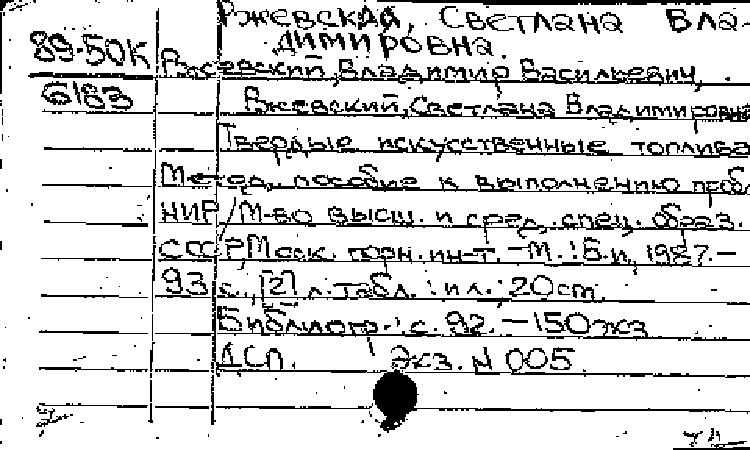 Ржевская, Светлана Вла-
димировна.
89-50К Ржевский, Владимир Васильевич,
6183 Ржевский, Светлана Владимировна
Твердые искусственные топлива
Метод. пособие к выполнению пробл.
НИР / М-во высш. и сред. спец. образ.
СССР, Моск. горн. ин-т. - М. : Б. и, 1987. -
93 с., [2] л. табл. : ил. ; 20 cm.
Библиогр.: с. 92. - 150 экз
ДСП. Экз. N 005